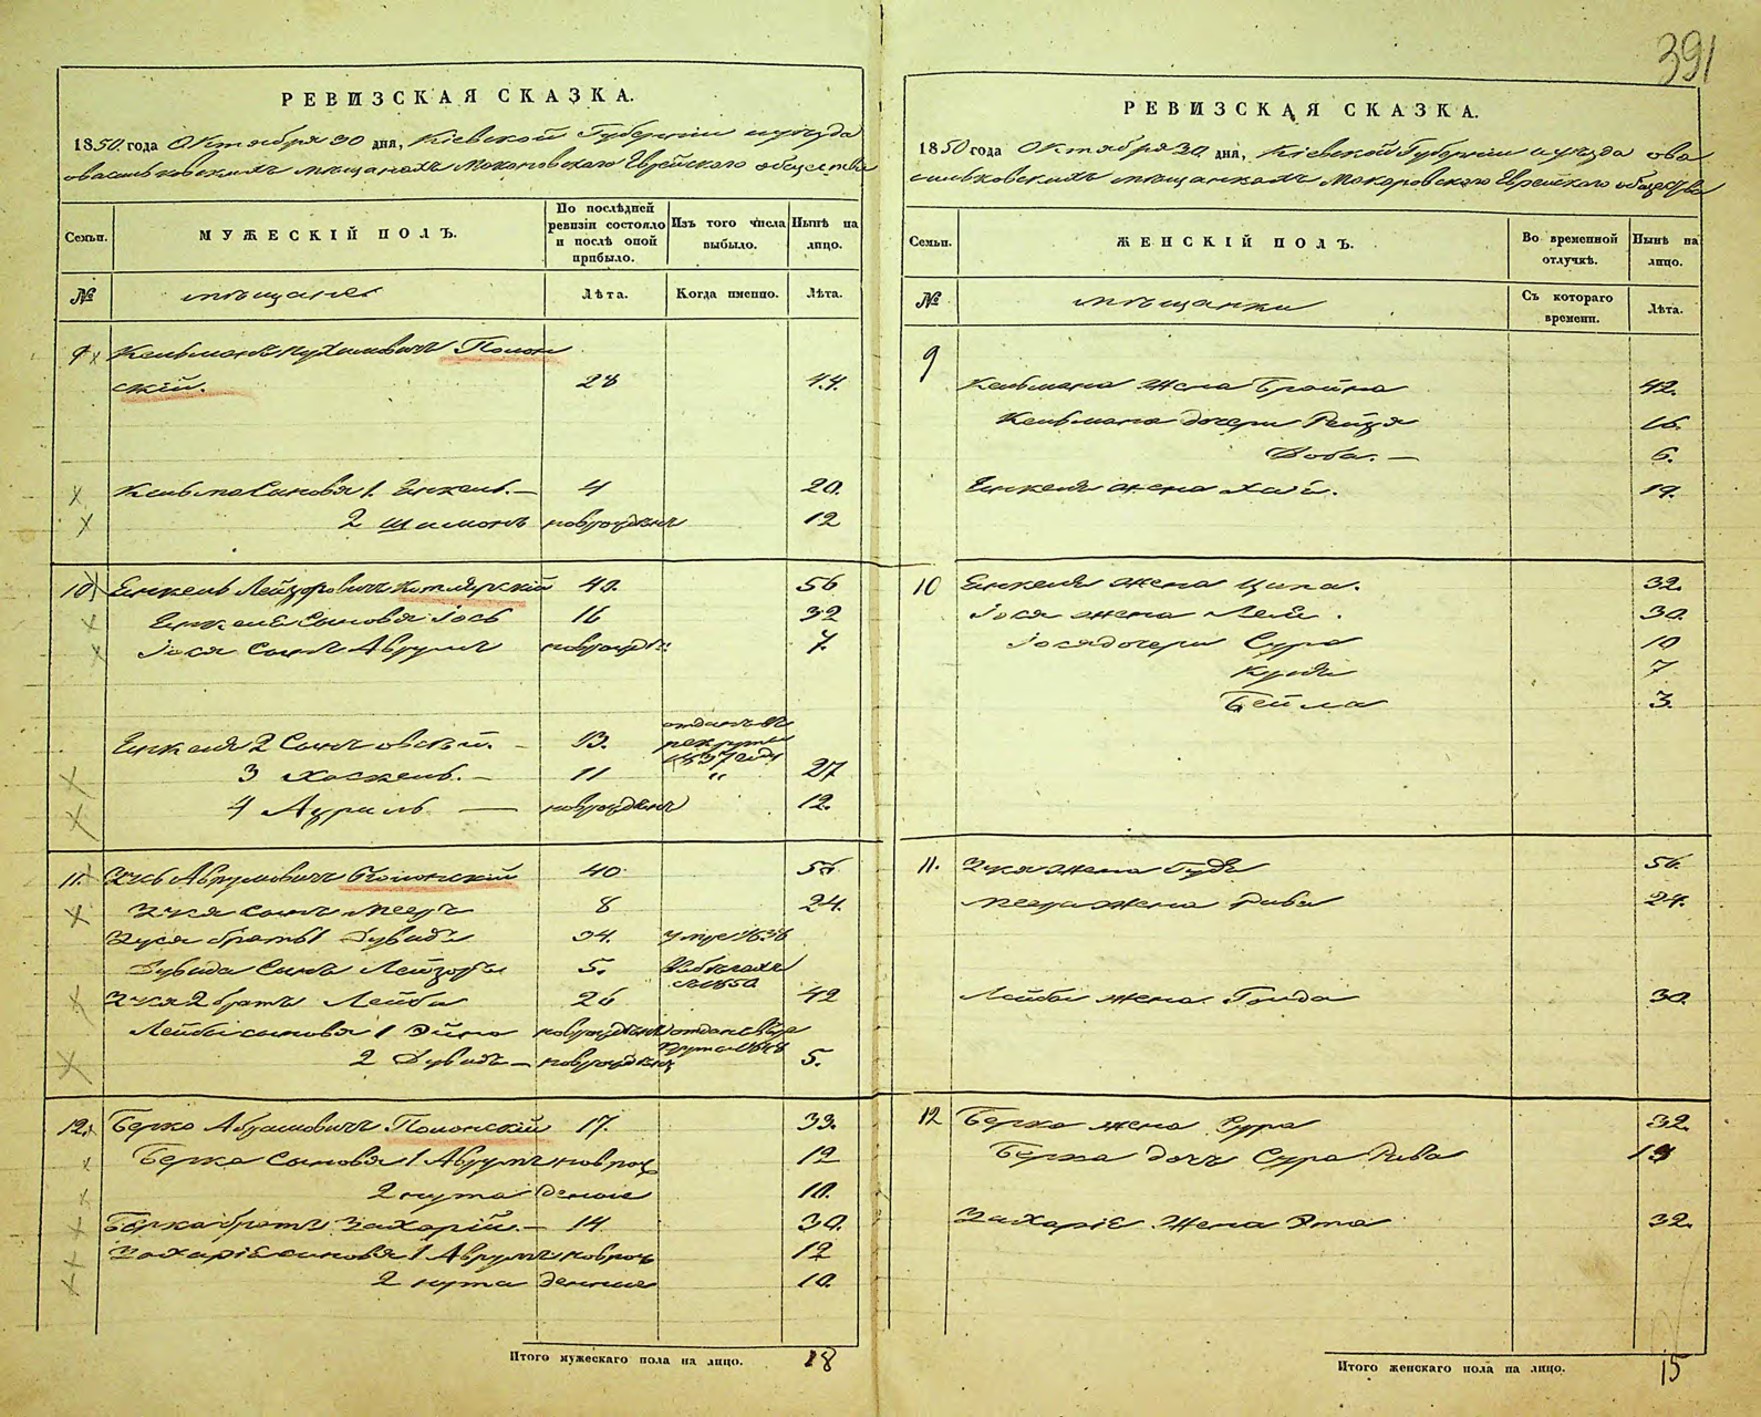 391
РЕВИЗСКАЯ СКАЗКА.
1850 года Октября 30 дня, Кіевской Губерніи и уѣзда
о васильковскихъ мѣщанахъ Макаровского Еврейского общества
Семьи.
МУЖЕСКІЙ ПОЛЪ.
По послѣдней ревизіи состояло и послѣ оной прибыло.
Изъ того числа выбыло.
Нынѣ на лицо.
№
мѣщане
Лѣта.
Когда именно.
Лѣта.
9 Кельманъ Полон
скій. 28 44
Кельмана Сыновья 1. Енкель. — 4 20.
2 Шимонъ новорожденъ 12
10 Енкель Лейзоровичъ Котлярскій 40. 56
Енкеля Сыновья Іось 16 32
Іося Сынъ Аврумъ 7.
Енкеля 2 Сынъ Овсѣй. — 13. отданъ въ рекруты 1837 году
3 Хаскель. — 11 " 27
4 Азриль — новорожденъ 12.
11. Зусь Аврумовичъ Полонскій 40 56
Зуся Сынъ Мееръ 8 24.
Зуся братъ 1 Дувидъ 34. умре 1836
Дувида Сынъ Лейзоръ 5. Въ бѣгахъ с 1850
Зуся 2 братъ Лейба 26 42
Лейбы сыновья 1 новорожденъ отданъ въ рекруты 1848
2 Дувидъ — новорожденъ 5.
12. Берко Абрамовичъ Полонскій 17. 33.
Берка Сыновья 1 Аврумъ новорож 12
2 нута денные 10.
Берка братъ Захарій. — 14 30.
Захаріе сыновья 1 Аврумъ новорож 12
2 нута денные 10.
Итого мужескаго пола на лицо. 18
РЕВИЗСКАЯ СКАЗКА.
1850 года Октября 30 дня, Кіевской Губерніи и уѣзда о ва
сильковскихъ мѣщанкахъ Макаровского Еврейского общества
Семьи.
ЖЕНСКІЙ ПОЛЪ.
Во временной отлучкѣ.
Нынѣ на лицо.
№
мѣщанки
Съ котораго времени.
Лѣта.
9
Кельмана Жена Бройна 42.
Кельмана дочери Рейзя 16.
Доба. — 6.
Енкеля жена Хая. 19.
10 Енкеля жена Ципа. 32.
Іося жена Лея. 30.
Іося дочери Сура 10
7
Бейла 3.
11. Зуся жена 56.
Меера жена Рива 24.
Лейбы жена Голда 30.
12 Берка жена Сура 32.
Берка дочь Сура Рива
Захаріе Жена Эта 32.
Итого женскаго пола на лицо. 15